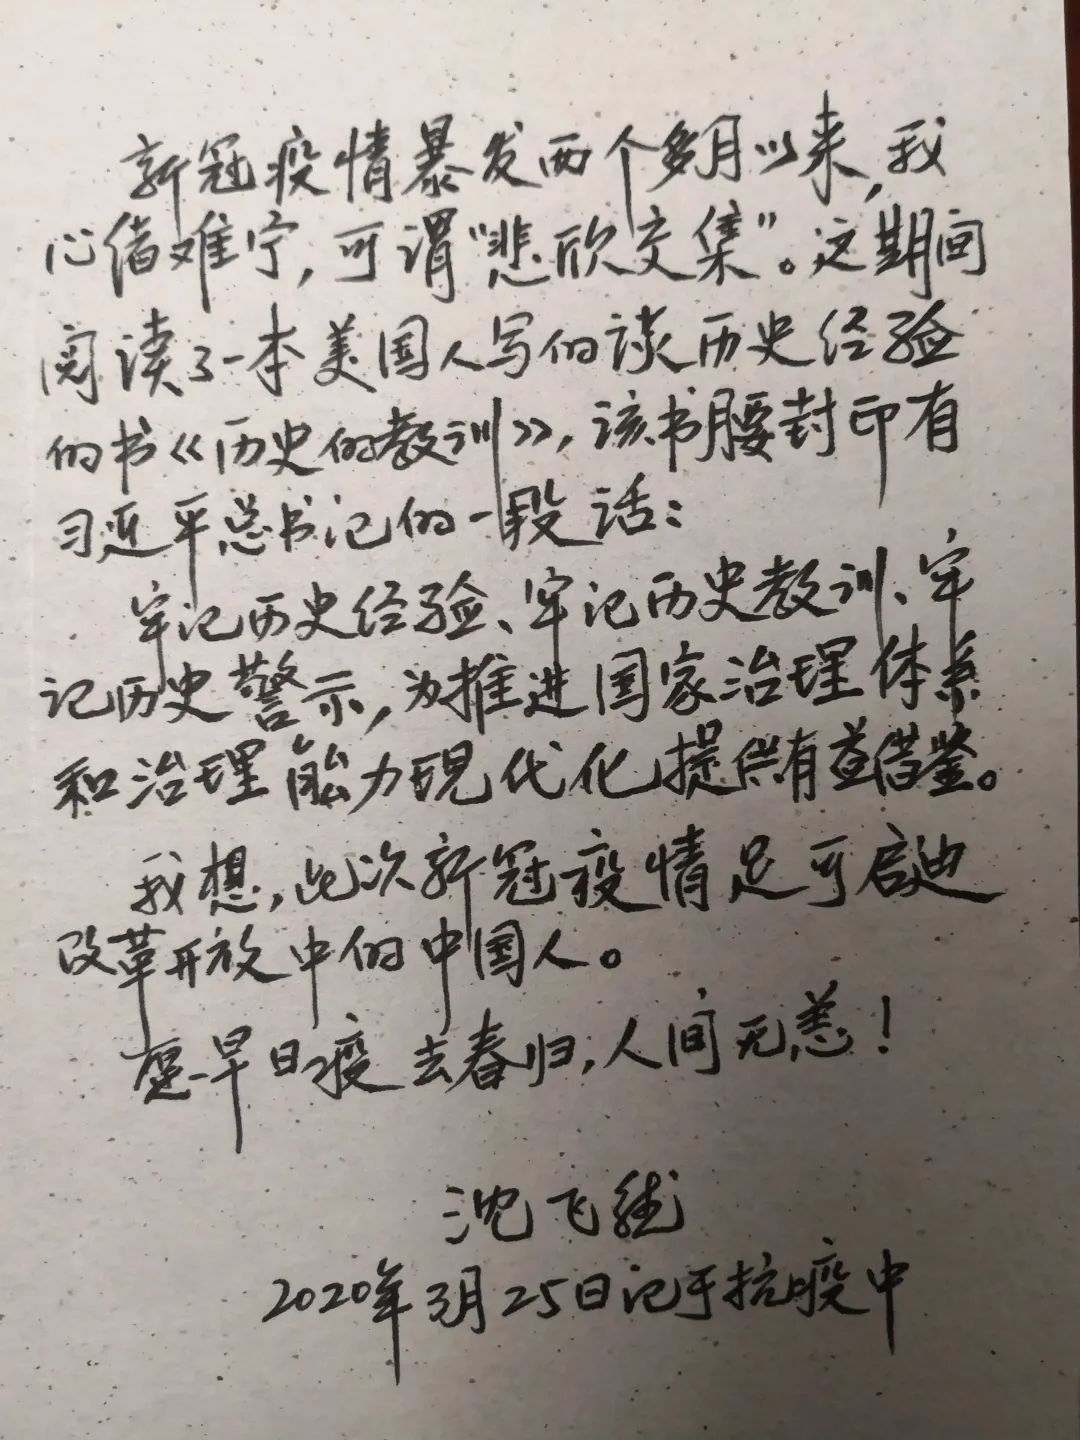 新冠疫情暴发两个多月以来,我
心绪难宁,可谓“悲欣交集”。这期间
阅读了一本美国人写的谈历史经验
的书《历史的教训》,该书腰封印有
习近平总书记的一段话:
牢记历史经验、牢记历史教训、牢
记历史警示,为推进国家治理体系
和治理能力现代化提供有益借鉴。
我想,此次新冠疫情足可启迪
改革开放中的中国人。
愿早日疫去春归,人间无恙!
沈飞
2020年3月25日记于抗疫中